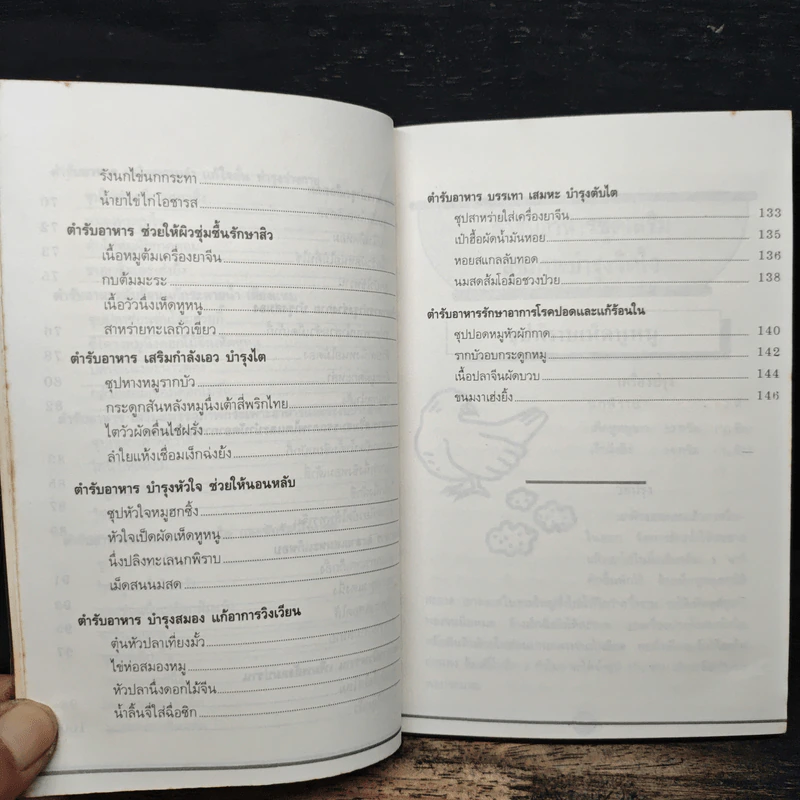 รังนกไข่นกกระทา
น้ำยาไข่ไก่โอซารส
ตำรับอาหาร ช่วยให้ผิวชุ่มชื้นรักษาสิว
เนื้อหมูต้มเครื่องยาจีน
กบต้มมะระ
เนื้อวัวนึ่งเห็ดหูหนู
สาหร่ายทะเลถั่วเขียว
ตำรับอาหาร เสริมกำลังเอว บำรุงไต
ซุปหางหมูรากบัว
กระดูกสันหลังหมูนึ่งเต้าสี่พริกไทย
ไตวัวผัดคื่นไช่ฝรั่ง
ลำใยแห้งเชื่อมเง็กฉ่งยัง
ตำรับอาหาร บำรุงหัวใจ ช่วยให้นอนหลับ
ซุปหัวใจหมูฮกซิ้ง
หัวใจเป็ดผัดเห็ดหูหนู
นึ่งปลิงทะเลนกพิราบ
เม็ดสนนมสด
ตำรับอาหาร บำรุงสมอง แก้อาการวิงเวียน
ตุ๋นหัวปลาเทียงมั้ว
ไข่ห่อสมองหมู
หัวปลานึ่งดอกไม้จีน
น้ำลิ้นจี่ใส่ฉื่อซิก
ตำรับอาหาร บรรเทา เสมหะ บำรุงตับไต
ซุปสาหร่ายใส่เครื่องยาจีน 133
เป๋าฮื้อผัดน้ำมันหอย 135
หอยสแกลลับทอด 136
นมสดส้มโอมือชวงป๋วย 138
ตำรับอาหารรักษาอาการโรคปอดและแก้ร้อนใน
ซุปปอดหมูหัวผักกาด 140
รากบัวอบกระดูกหมู 142
เนื้อปลาจีนผัดบวบ 144
ขนมงาเฮ่งยิ้ง 146